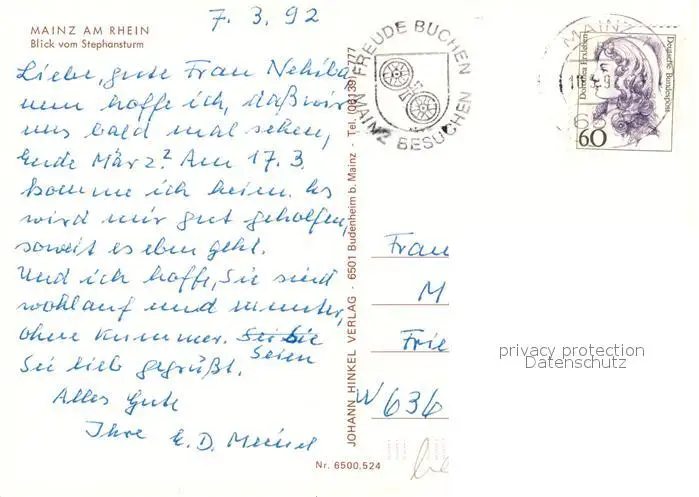 7.3.92
MAINZ AM RHEIN
Blick vom Stephansturm
Liebe, gute Frau Nehiba
nun hoffe ich, daß wir
uns bald mal sehen,
Ende März? Am 17.3.
komme ich heim. Es
wird mir gut geholfen,
soweit es eben geht.
Und ich hoffe, Sie sind
wohlauf und munter,
ohne Kummer. Sei Sie
Seien
Sie lieb gegrüßt.
Alles Gute
Ihre E. D.
JOHANN HINKEL VERLAG · 6501 Budenheim b. Mainz · Tel. (06139)
Nr. 6500.524
FREUDE BUCHEN
MAINZ BESUCHEN
MAINZ
Dorothea Erxleben
Deutsche Bundespost
60
Frau
M
Frie
W 636
privacy protection
Datenschutz